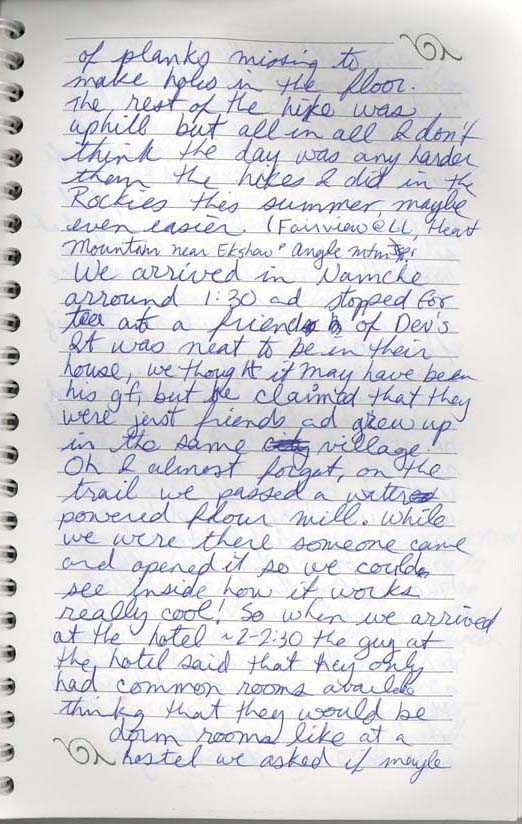 of planks missing to
make holes in the floor.
The rest of the hike was
uphill but all in all I don't
think the day was any harder
them the hikes I did in the
Rockies this summer, maybe
even easier. (Fairview @ LL, Heart
Mountain near Ekshaw
We arrived in Namche
arround 1:30 ad stopped for
tea at a friend of Dev's
It was neat to be in their
house, we thought it may have been
his gf, but he claimed that they
were just friends ad grew up
in the same village.
Oh I almost forgot, on the
trail we passed a water
powered flour mill. While
we were there someone came
and opened it so we could
see inside how it works
really cool! So when we arrived
at the hotel ~2-2:30 the guy at
the hotel said that they only
had common rooms
thinkg that they would be
dorm rooms like at a
hostel we asked if maybe